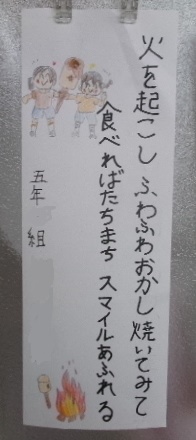 火を起こし ふわふわおかし焼いてみて
食べればたちまち スマイルあふれる
五年 組